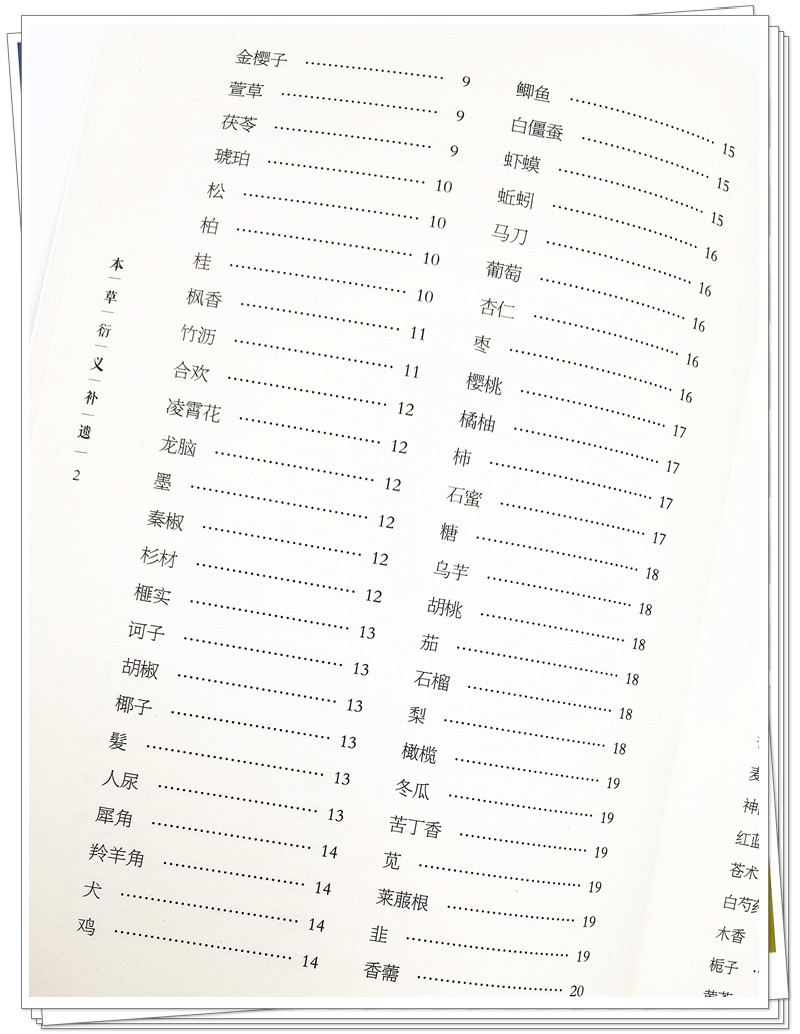 金樱子 9
萱草 9
茯苓 9
琥珀 10
松 10
柏 10
桂 10
枫香 11
竹沥 11
合欢 12
凌霄花 12
龙脑 12
墨 12
秦椒 12
杉材 12
榧实 13
诃子 13
胡椒 13
椰子 13
髮 13
人尿 13
犀角 14
羚羊角 14
犬 14
鸡 14
鲫鱼 15
白僵蚕 15
虾蟆 15
蚯蚓 16
马刀 16
葡萄 16
杏仁 16
枣 16
樱桃 17
橘柚 17
柿 17
石蜜 17
糖 18
乌芋 18
胡桃 18
茄 18
石榴 18
梨 18
橄榄 19
冬瓜 19
苦丁香 19
苋 19
莱菔根 19
韭 19
香薷 20
本草衍义补遗 2
麦
神
红蓝
苍术
白芍药
木香
栀子